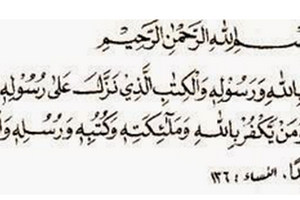 ـسـمِ اللهِ الرَّحْمٰنِ الرَّحِيْمِ
بِاللهِ وَرَسُوْلِهٖ وَالْكِتٰبِ الَّذِيْ نَزَّلَ عَلٰى رَسُوْلِهٖ
وَمَنْ يَكْفُرْ بِاللهِ وَمَلٰٓئِكَتِهٖ وَكُتُبِهٖ وَرُسُلِهٖ وَا
دًا. النساء : ١٣٦